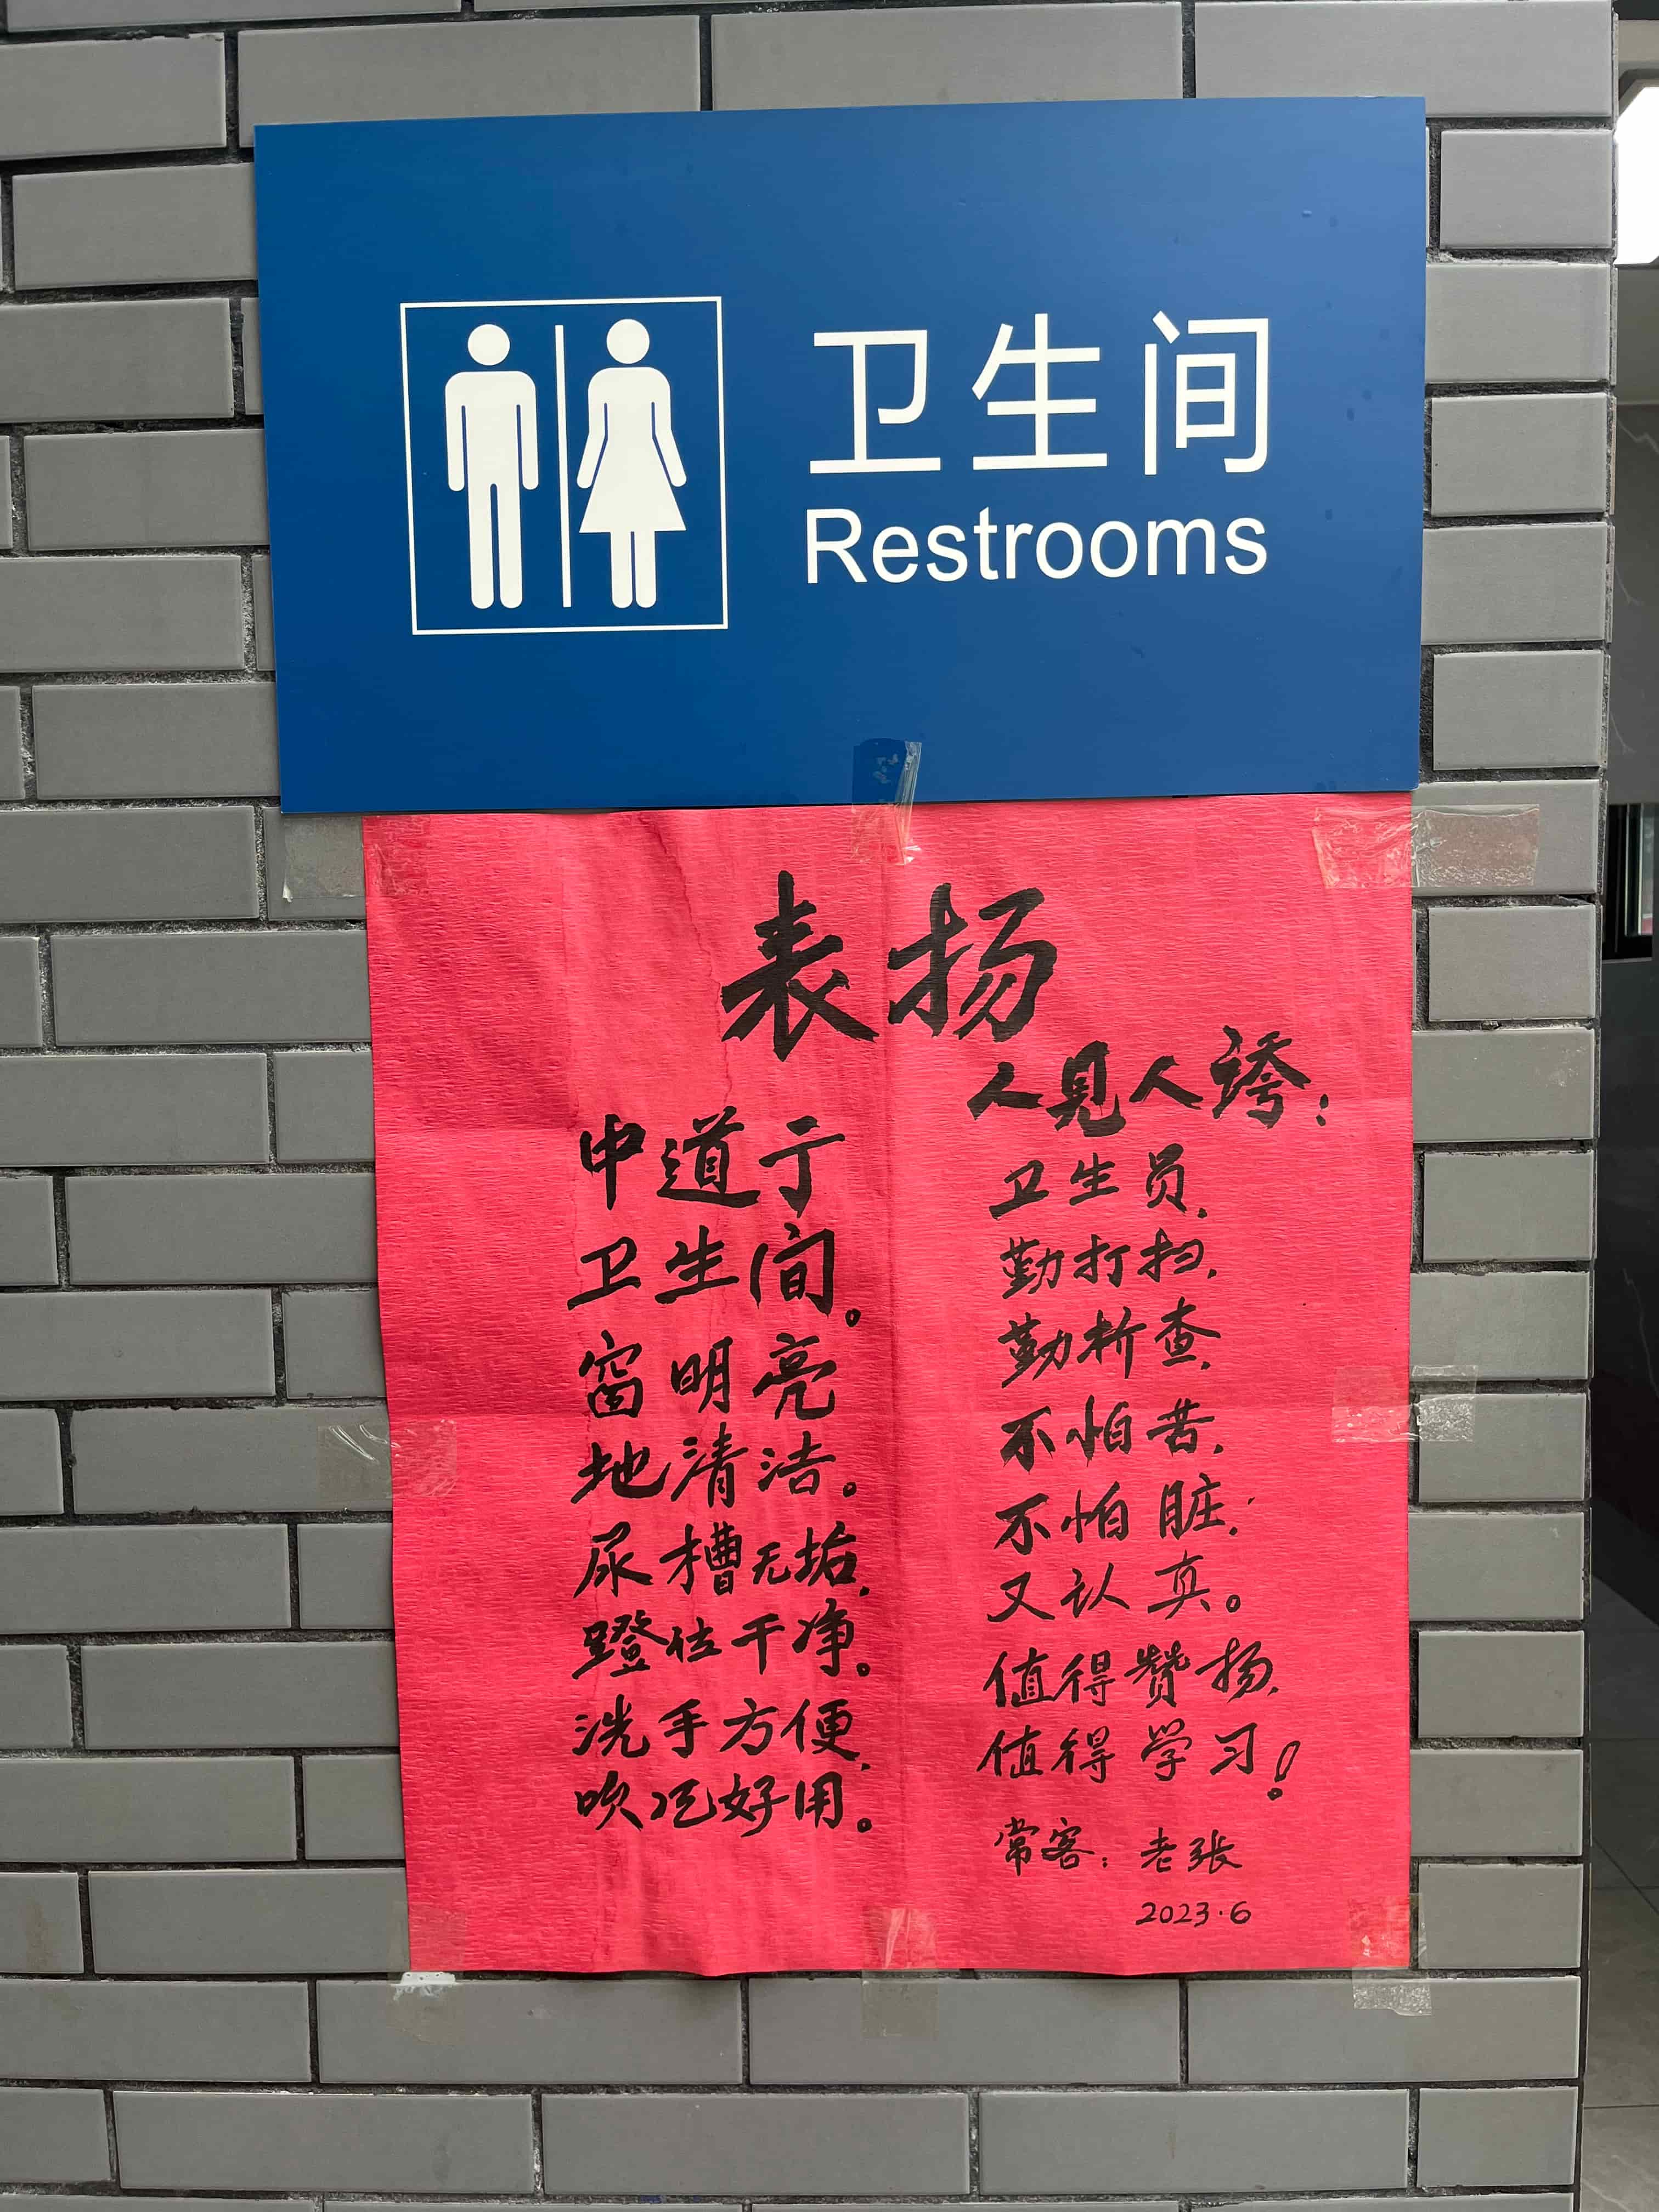 卫生间
Restrooms
表扬
中道于
卫生间。
窗明亮
地清洁。
尿槽无垢,
蹬位干净。
洗手方便,
吹气好用。
人见人誇:
卫生员,
勤打扫,
勤析查,
不怕苦,
不怕脏,
又认真。
值得赞扬,
值得学习!
常客:老张
2023·6